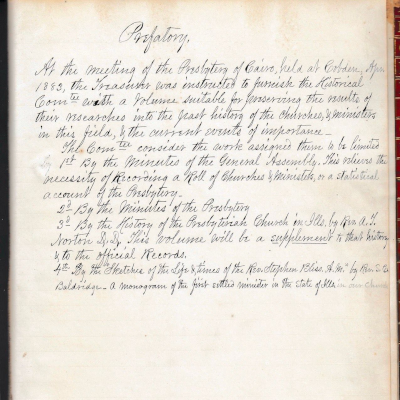 Prefatory.
At the meeting of the Presbytery of Cairo, held at Cobden, Apr.
1883, the Treasurer was instructed to furnish the Historical
Comtee with a Volume suitable for preserving the results of
their researches into the past history of the Churches, & Ministers
in this field, & the current events of importance—
This Comtee consider the work assigned them to be limited
1st By the Minutes of the General Assembly. This relieves the
necessity of Recording a Roll of Churches & Ministers, or a statistical
account of the Presbytery.
2d By the Minutes of the Presbytery
3d By the History of the Presbyterian Church in Ills. by Rev. A. T.
Norton D.D. This volume will be a supplement to that history
& to the official Records.
4th By the Sketches of the Life & times of the Rev. Stephen Bliss A.M. by Rev.
Baldridge— A monogram of the first settled minister in the State of Ills in our Church